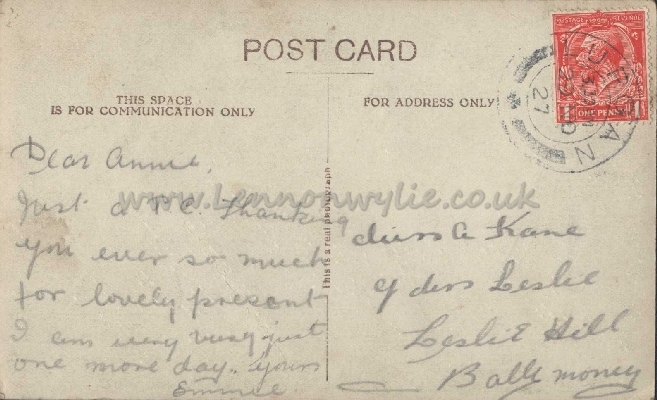 POST CARD
THIS SPACE
IS FOR COMMUNICATION ONLY
FOR ADDRESS ONLY
POSTAGE REVENUE
ONE PENNY
27
Dear Annie,
Just a P.C. Thanking
you ever so much
for lovely present
I am very busy just
one more day. Yours
Emmie
This is a real photograph
Miss A Kane
c/o Mrs Leslie
Leslie Hill
Ballymoney
www.Lennonwylie.co.uk